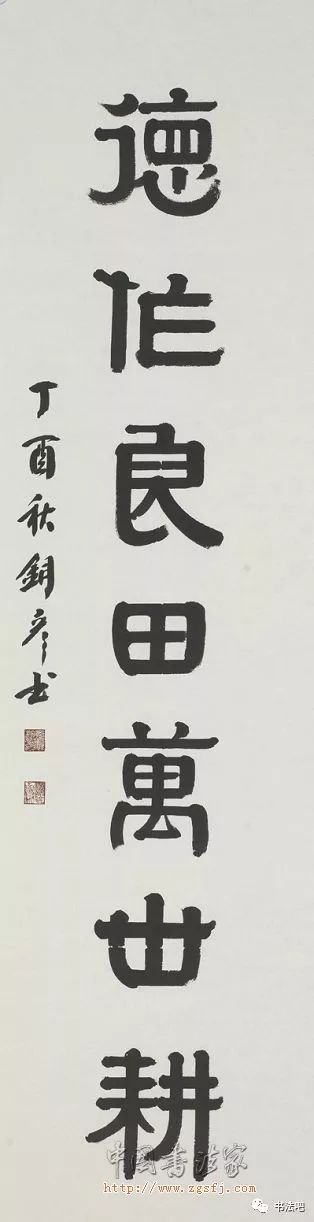 德作良田萬世耕
丁酉秋銅彦书
中国书法家
http://www.zgsfj.com
书法吧